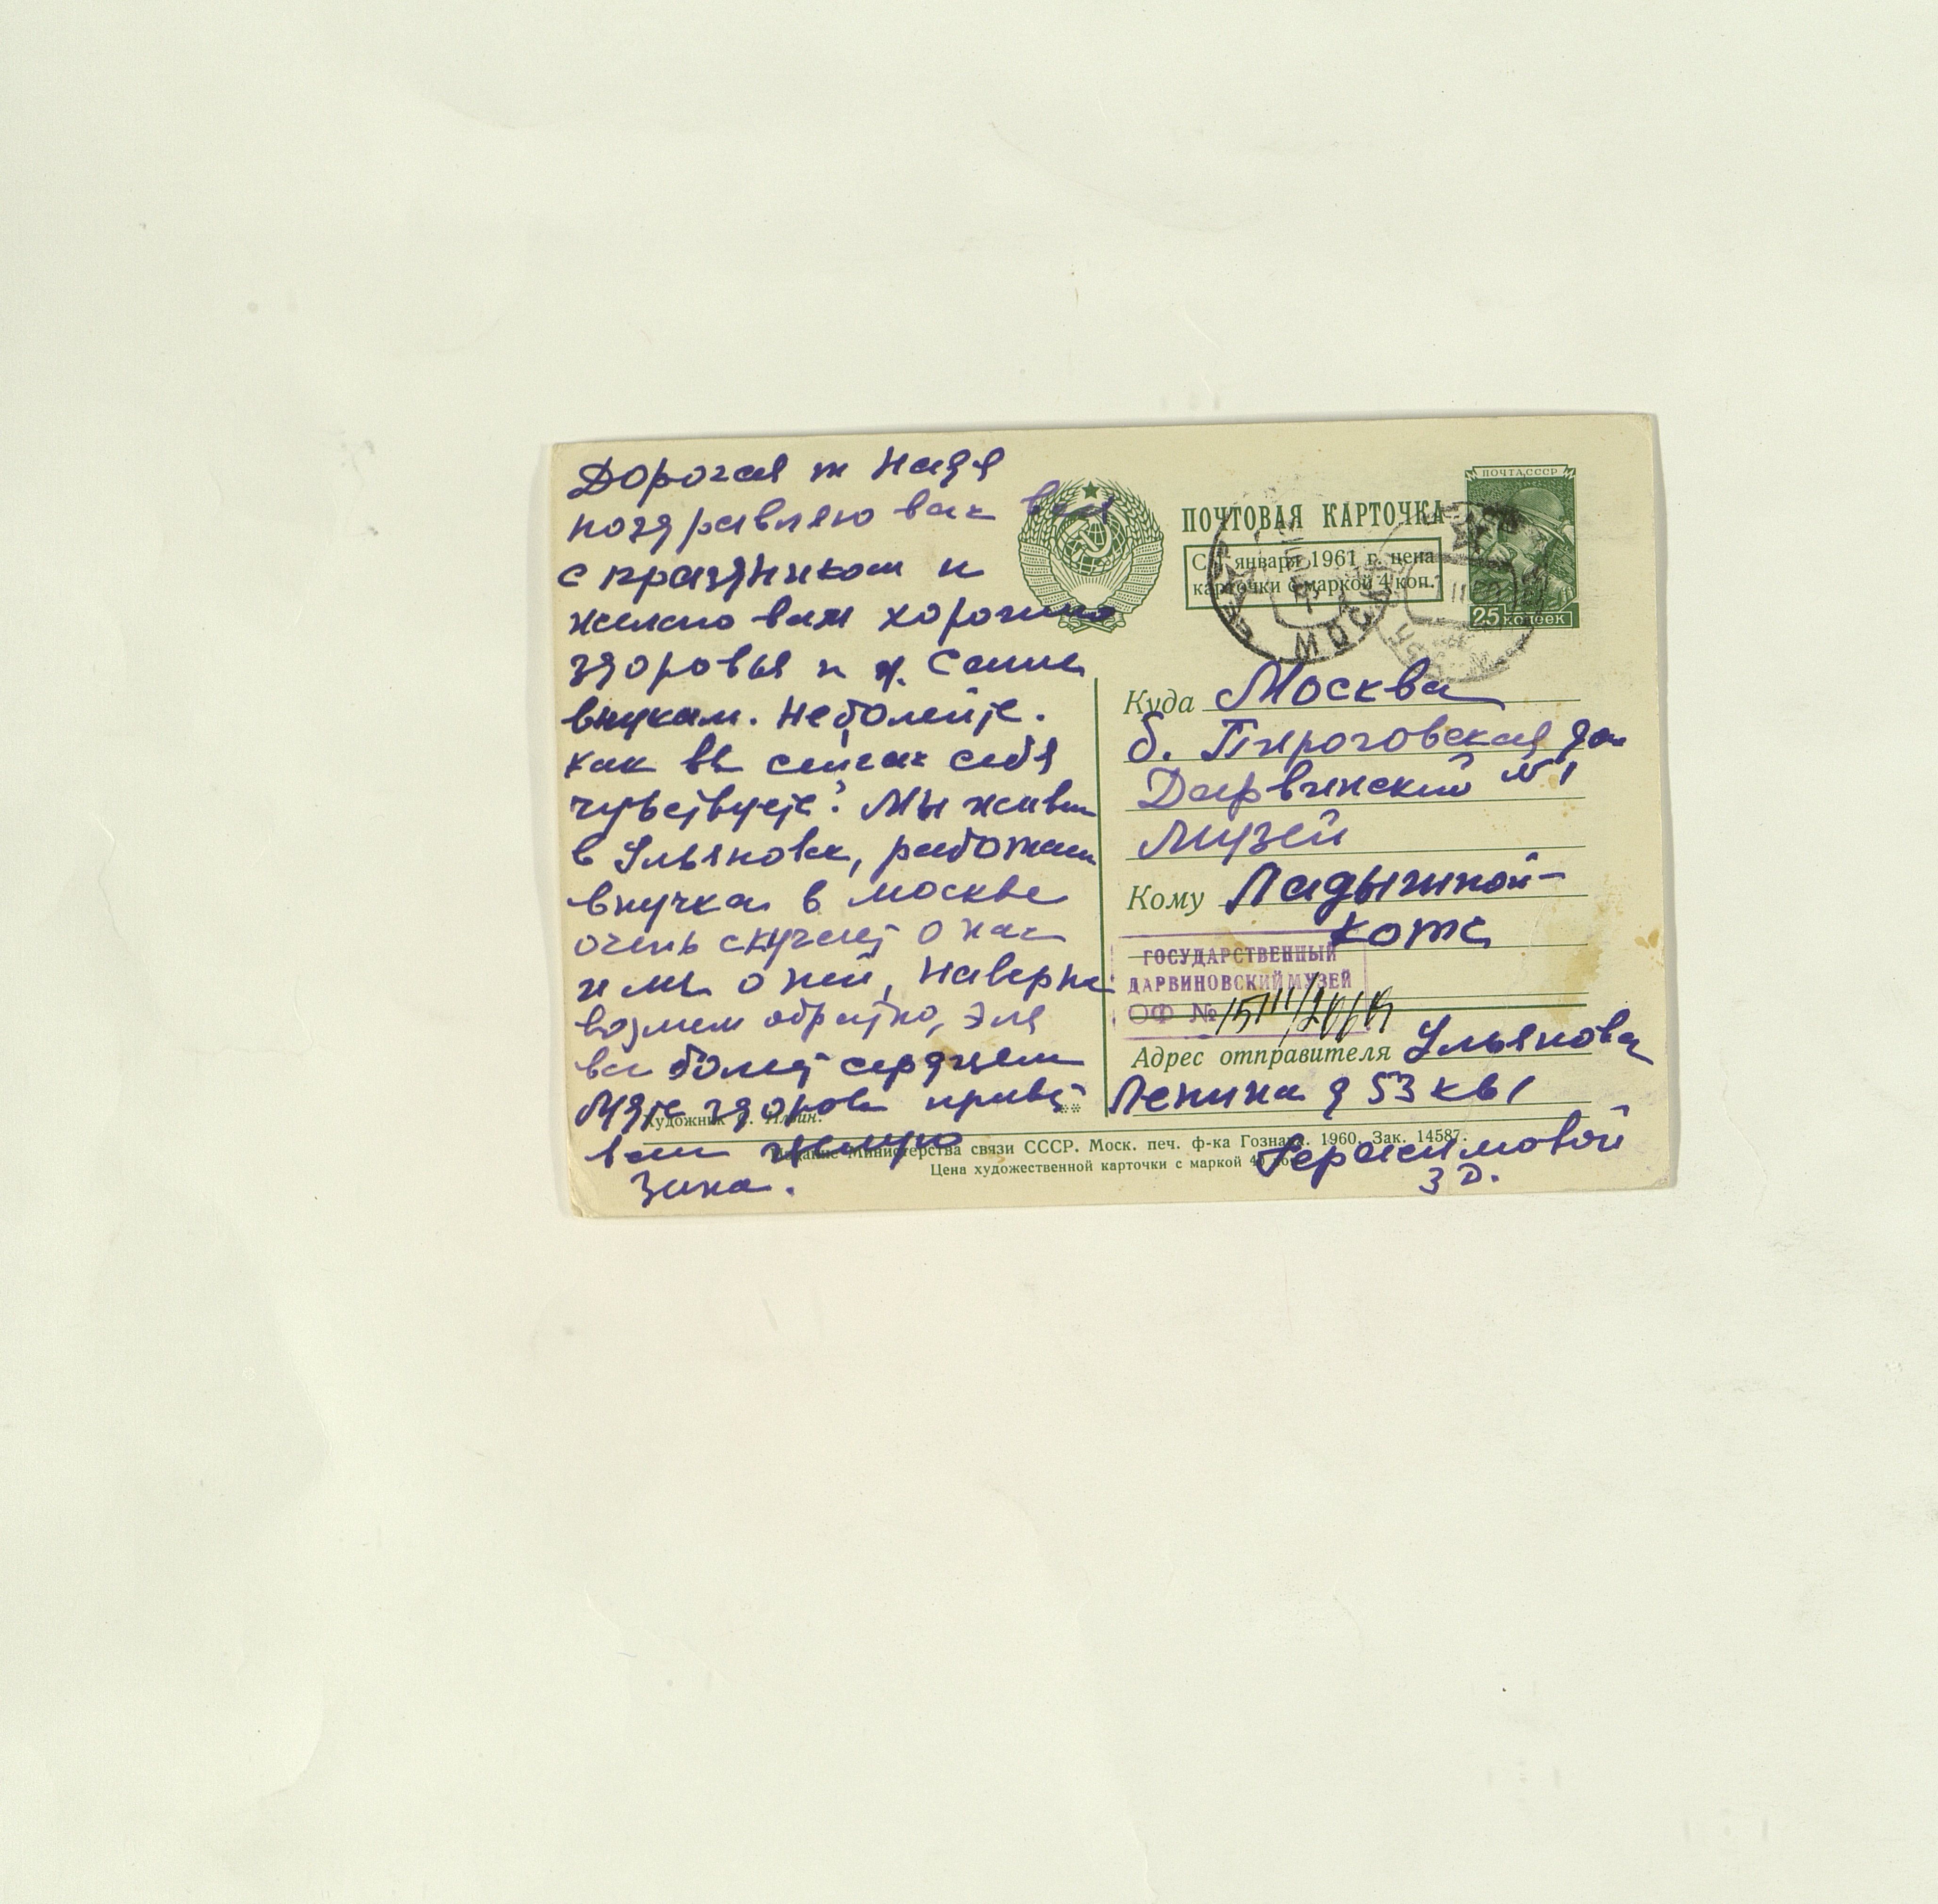 Дорогая т Надя
поздравляю вас всех
с праздником и
желаю вам хорошего
здоровья и д. Саше
внукам. Не болейте.
как вы сейчас себя
чувствуете? Мы живем
в Ульяновске, работаем
внучка в Москве
очень скучает о нас
и мы о ней, наверно
возмем обратно, Эля
все болеет сердцем
Будте здорова привет
всем
Зина.
ПОЧТА СССР
25 копеек
ПОЧТОВАЯ КАРТОЧКА
С 1 января 1961 г. цена
карточки с маркой 4 коп.
МОСКВА
Куда Москва
б. Пироговская дом
Дарвинский №1
музей
Кому Ладыгиной-
Котс
ГОСУДАРСТВЕННЫЙ
ДАРВИНОВСКИЙ МУЗЕЙ
ОФ №
Адрес отправителя Ульяновск
Ленина д 53 кв 1
Герасимовой
З Д.
Художник
Издание Министерства связи СССР. Моск. печ. ф-ка Гознака. 1960. Зак. 14587.
Цена художественной карточки с маркой 40